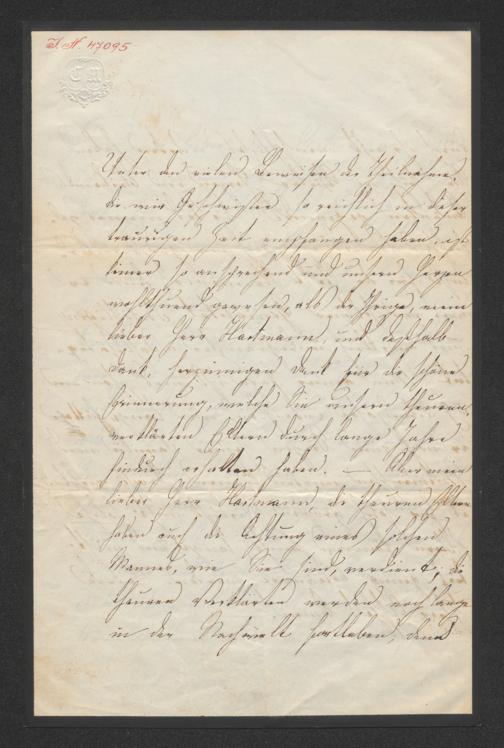 I.N. 47095
C M
Unter den vielen Beweisen der Theilnahme,
die wir Geschwister so reichlich in dieser
traurigen Zeit empfangen haben, ist
keiner so ansprechend und unsern Herzen
wohlthuend gewesen, als der Ihrige, mein
lieber Herr Hartmann, und deßhalb
Dank, herzinnigen Dank für die schöne
Erinnerung, welche Sie unsern theuren,
verklärten Eltern durch lange Jahre
hindurch erhalten haben. — Aber mein
lieber Herr Hartmann, die theuren Eltern
haben auch die Achtung eines solchen
Mannes, wie Sie sind, verdient; die
theuren Verklärten werden noch lange
in der Nachwelt fortleben, denn